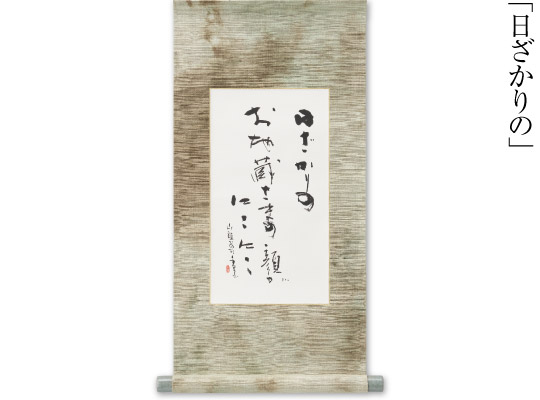 「日ざかりの」
日ざかりの
お地蔵さまの顔が
にこにこ